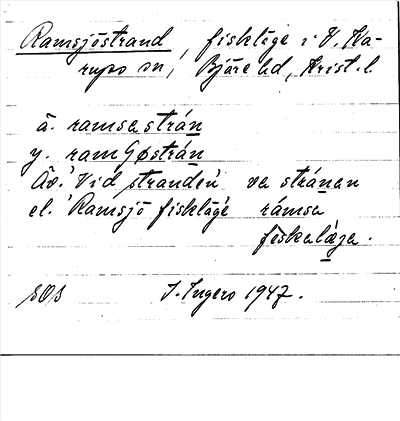 Ramsjöstrand, fiskläge i V. Ka-
rups sn, Bjäre hd, Krist. l.
ä. ramsastrán
y. ramsjøstrán
Äv. 'Vid stranden' va stránan
el. 'Ramsjö fiskläge' rámsa
feskaläja.
SOS I. Ingers 1947.